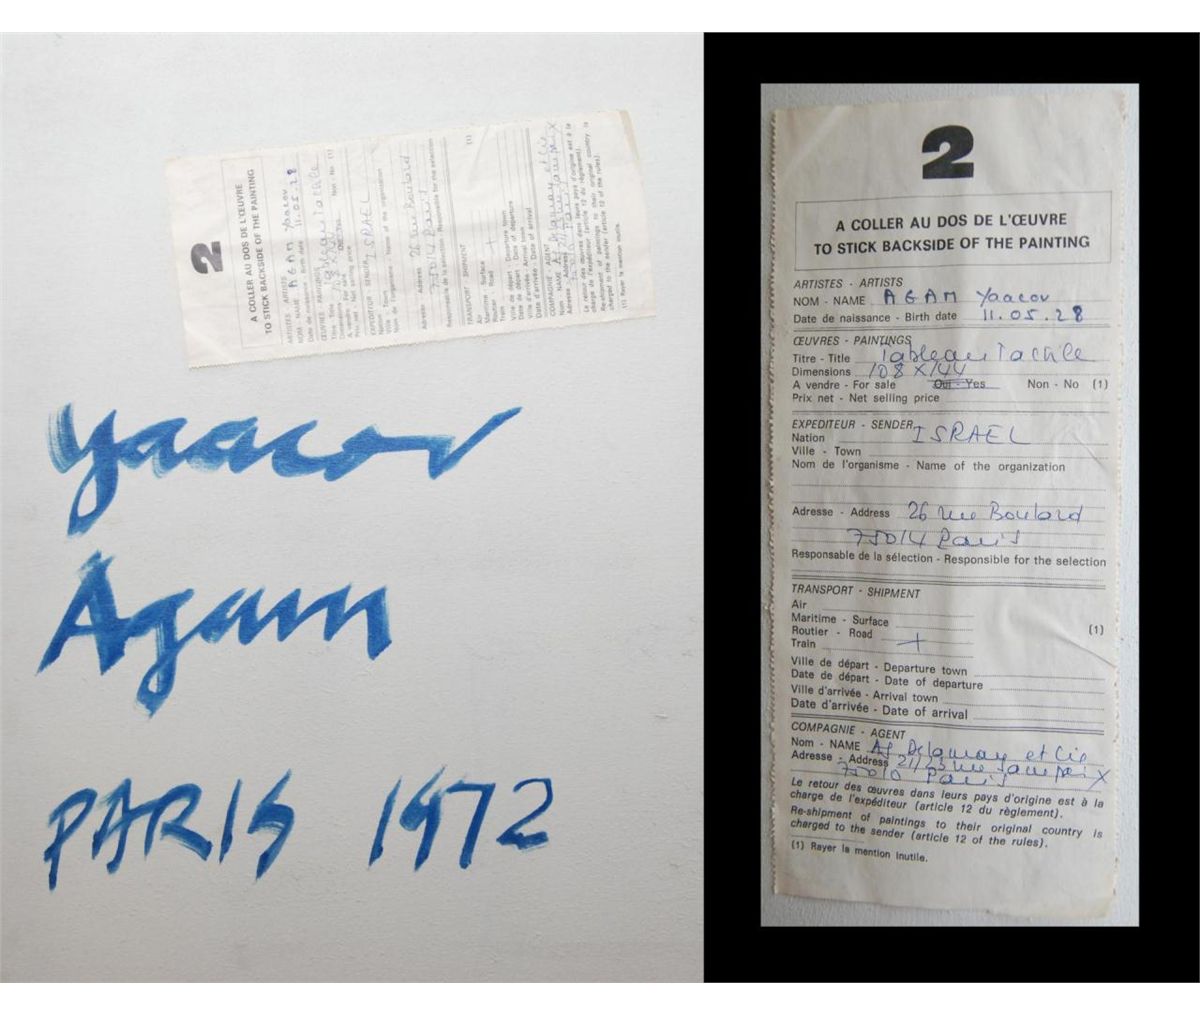 Yaacov
Agam
PARIS 1972
2
A COLLER AU DOS DE L'ŒUVRE
TO STICK BACKSIDE OF THE PAINTING
ARTISTES - ARTISTS
NOM - NAME AGAM Yaacov
Date de naissance - Birth date 11.05.28
ŒUVRES - PAINTINGS
Titre - Title Tableau Tactile
Dimensions 108 X 144
A vendre - For sale Oui - Yes Non - No (1)
Prix net - Net selling price
EXPEDITEUR - SENDER
Nation ISRAEL
Ville - Town
Nom de l'organisme - Name of the organization
Adresse - Address 26 rue Boulard
75014 Paris
Responsable de la sélection - Responsible for the selection
TRANSPORT - SHIPMENT
Air
Maritime - Surface (1)
Routier - Road
Train +
Ville de départ - Departure town
Date de départ - Date of departure
Ville d'arrivée - Arrival town
Date d'arrivée - Date of arrival
COMPAGNIE - AGENT
Nom - NAME Delaunay et Cie
Adresse - Address 21/23 rue
75010 Paris
Le retour des œuvres dans leurs pays d'origine est à la
charge de l'expéditeur (article 12 du règlement).
Re-shipment of paintings to their original country is
charged to the sender (article 12 of the rules).
(1) Rayer la mention inutile.